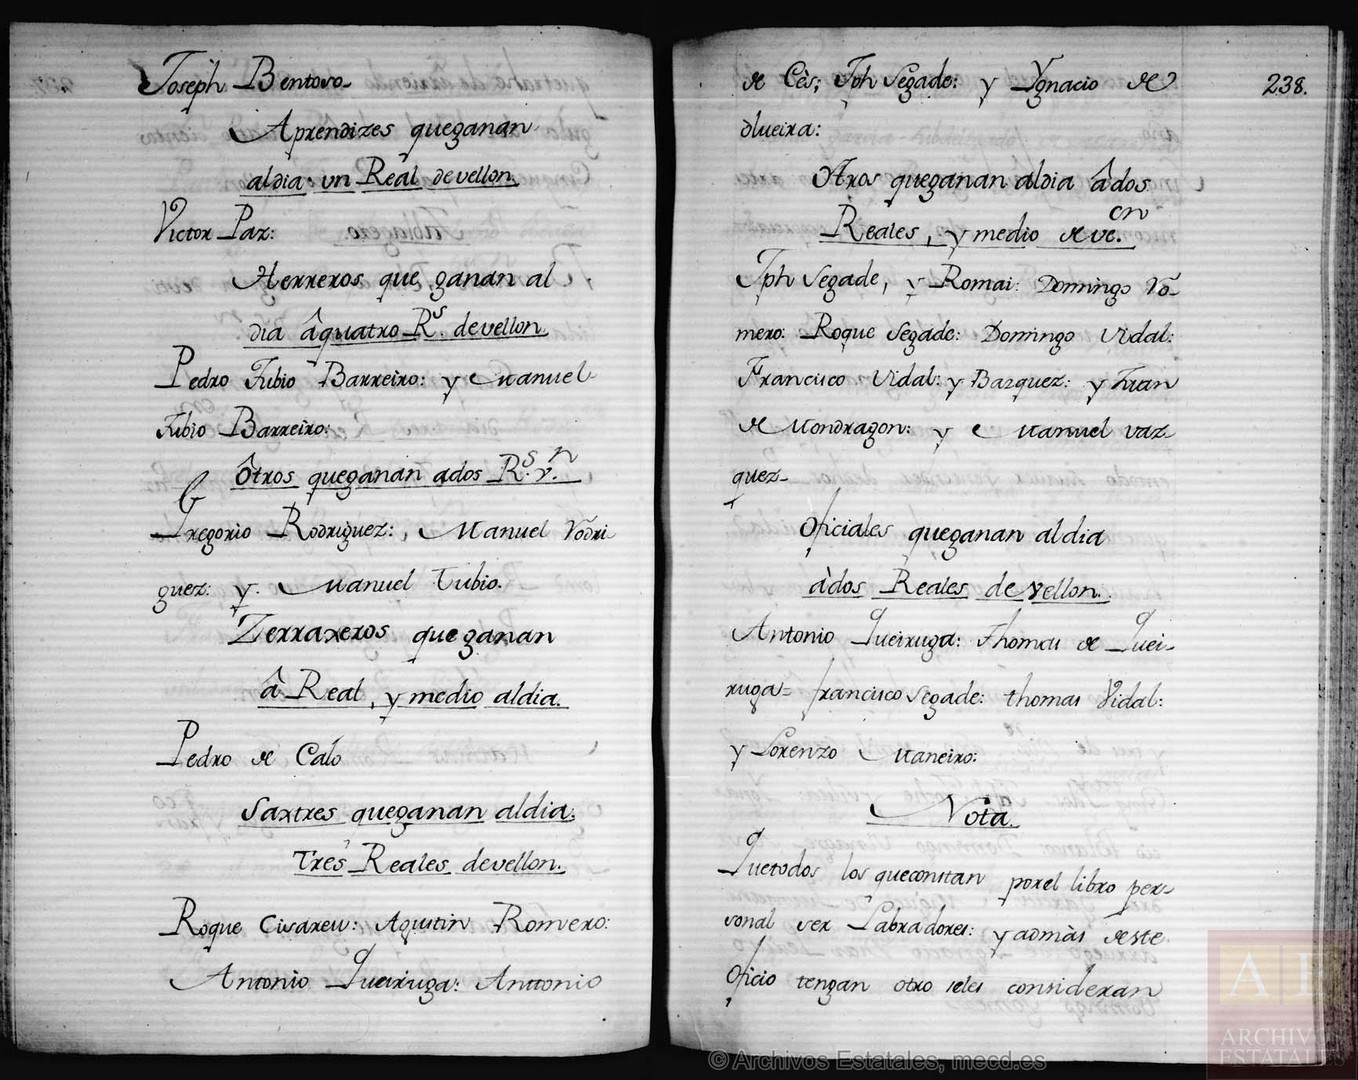 Joseph Bentoso
Aprendizes que ganan
al dia un Real de vellon.
Victor Paz:
Herreros que ganan al
dia â quatro Rs. de vellon.
Pedro Tubio Barreiro: y Manuel
Tubio Barreiro:
Ôtros que ganan a dos Rs. vn.
Gregorio Rodriguez: Manuel Rodri
guez: y. Manuel Tubio.
Zerraxeros que ganan
â Real, y medio al dia.
Pedro de Calo
Sastres que ganan al dia:
Tres Reales de vellon.
Roque Agustin Romero:
Antonio Queiruga: Antonio
de Cès; Jph Segade: y Ygnacio de
Olueira:
238.
Otros que ganan al dia â dos
Reales, y medio de ven.
Jph Segade, y Romai: Domingo Ro-
mero: Roque Segade: Domingo Vidal:
Francisco Vidal: y Bazquez: y Juan
de Mondragon: y Manuel vaz
quez-
Oficiales que ganan al dia
à dos Reales de vellon.
Antonio Queiruga: Thomas de Quei-
ruga= francisco Segade: thomas Vidal:
y Lorenzo Maneiro:
Nota
Que todos los que constan por el libro per-
sonal ser Labradores: y admàs de este
Oficio tengan otro se les consideran
© Archivos Estatales, mecd.es
AE
ARCHIVOS
ESTATALES